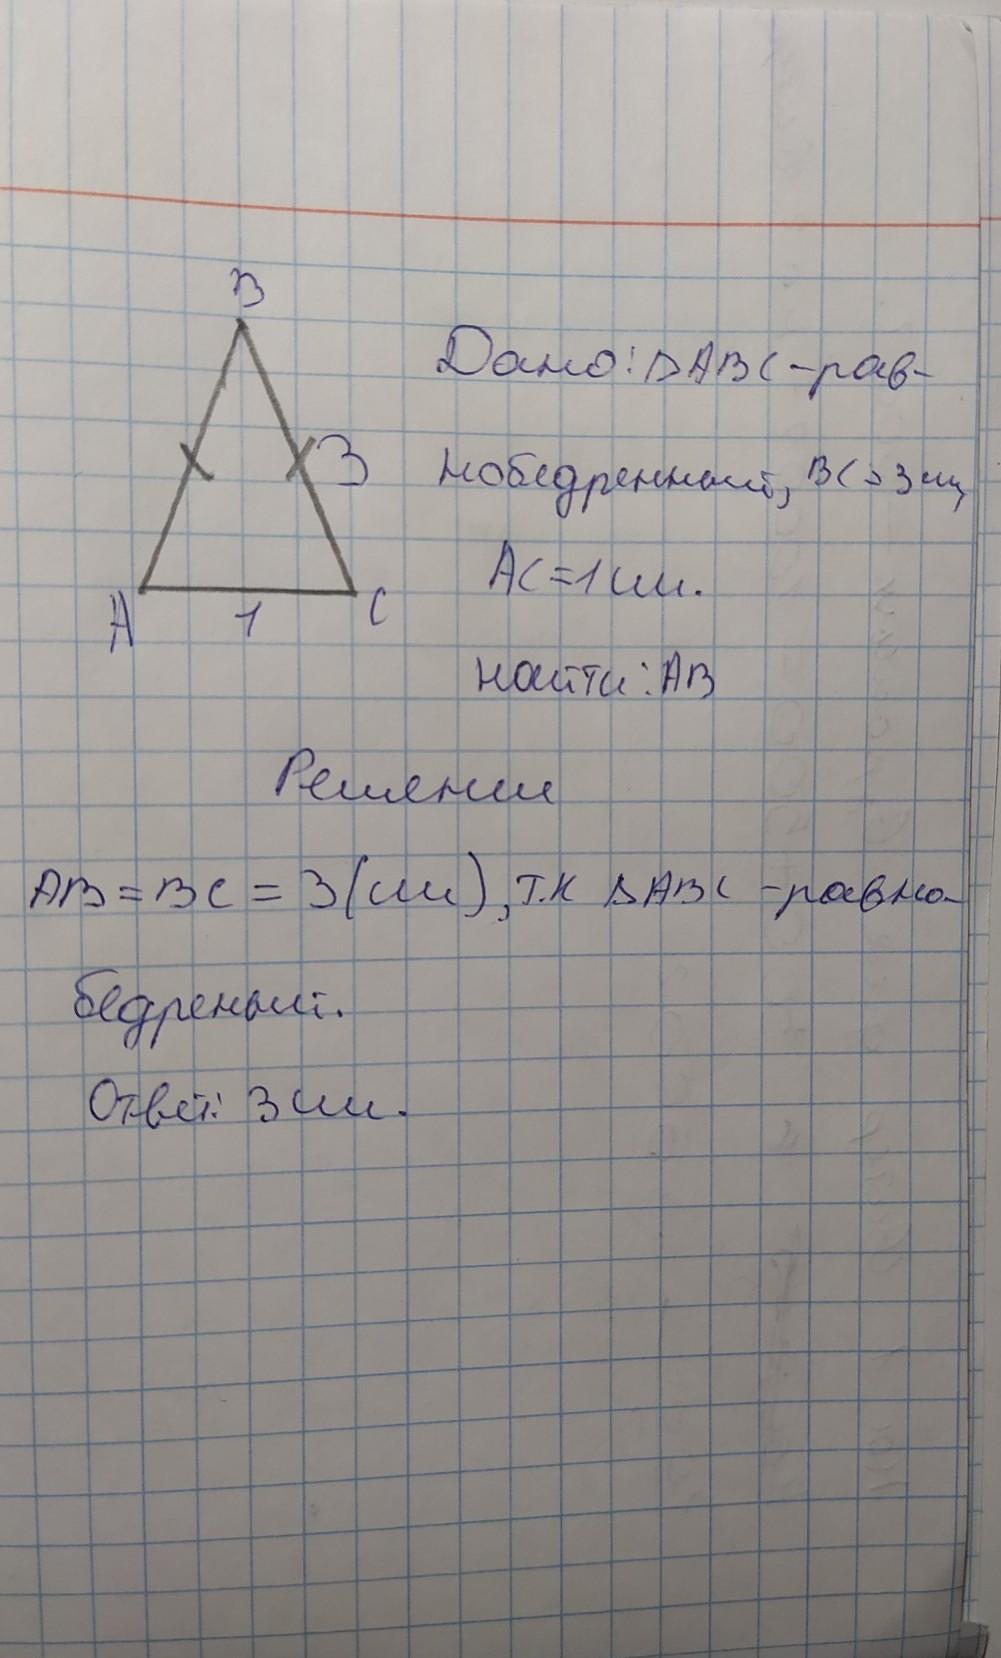 B
Дано: ΔABC - рав-
3
нобедренный, BC = 3 см,
AC = 1 см.
A 1 C
Найти: AB
Решение
AB = BC = 3 (см), т.к ΔABC - равно-
бедреный.
Ответ: 3 см.